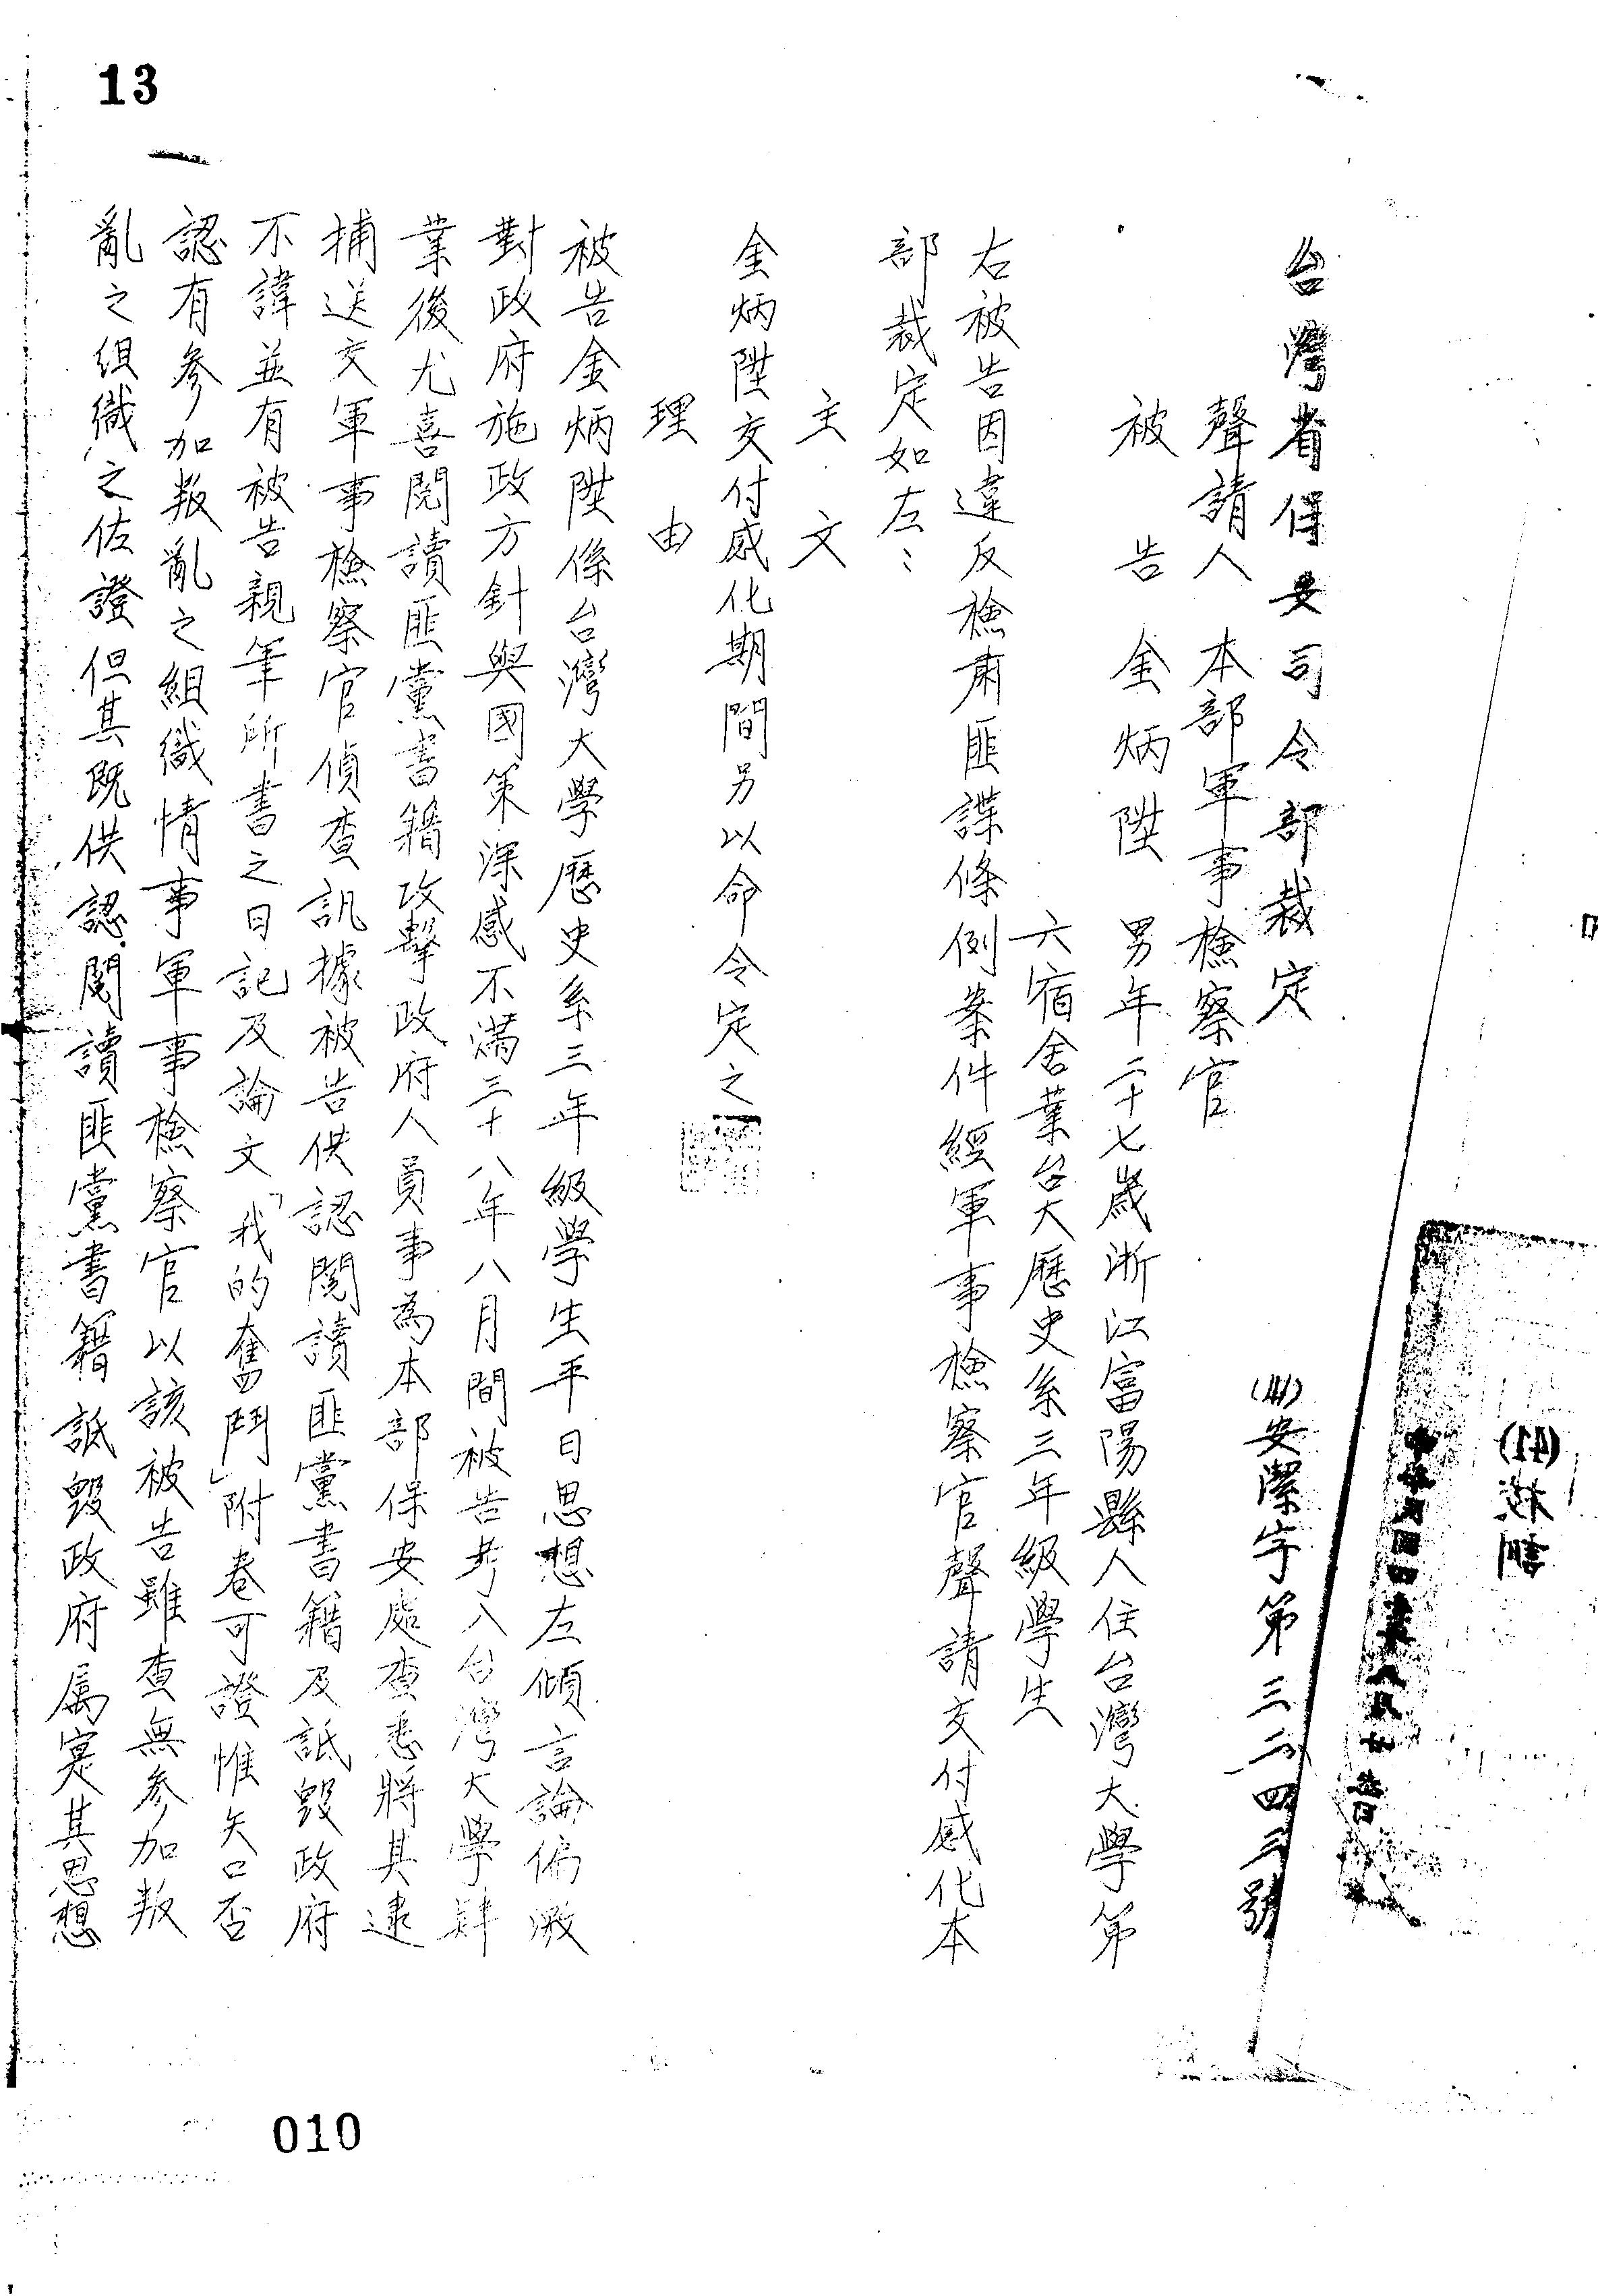 13
台灣省保安司令部裁定
(41)安潔字第三二四三號
聲請人　本部軍事檢察官
被告　金炳陞　男年二十七歲浙江富陽縣人住台灣大學第
六宿舍業台大歷史系三年級學生
右被告因違反檢肅匪諜條例案件經軍事檢察官聲請交付感化本
部裁定如左：
主文
金炳陞交付感化期間另以命令定之
理由
被告金炳陞係台灣大學歷史系三年級學生平日思想左傾言論偏激
對政府施政方針與國策深感不滿三十八年八月間被告考入台灣大學肄
業後尤喜閱讀匪黨書籍攻擊政府人員事為本部保安處查悉將其逮
捕送交軍事檢察官偵查訊據被告供認閱讀匪黨書籍及詆毀政府
不諱並有被告親筆所書之日記及論文「我的奮鬥」附卷可證惟矢口否
認有參加叛亂之組織情事軍事檢察官以該被告雖查無參加叛
亂之組織之佐證但其既供認閱讀匪黨書籍詆毀政府屬寔其思想
010